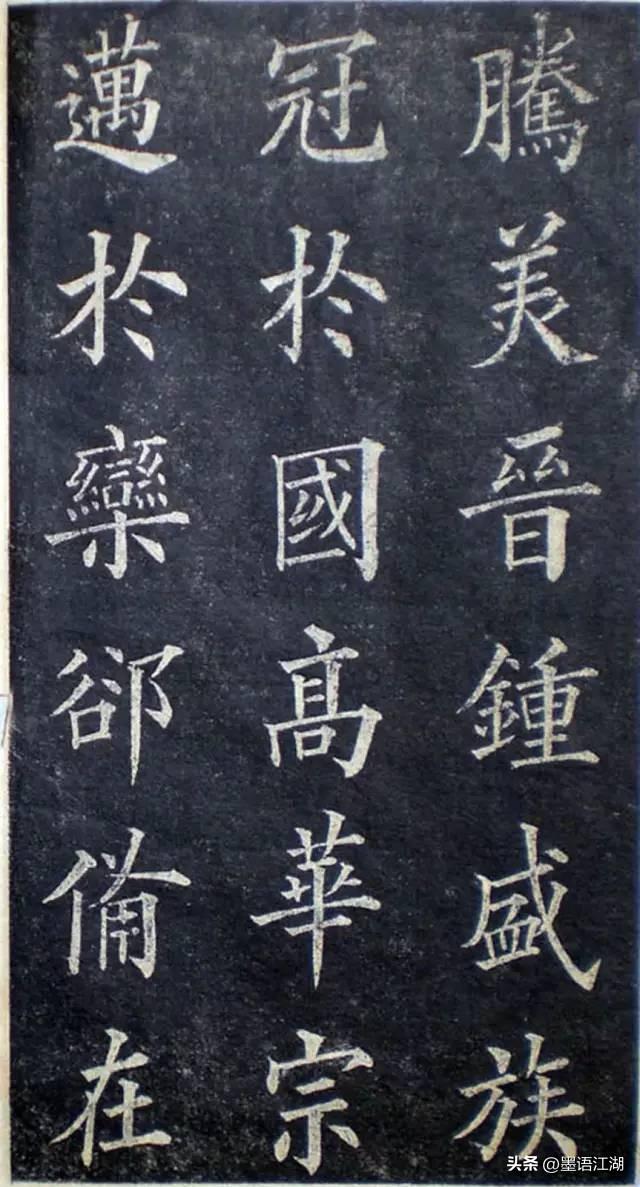 騰美晉鍾盛族
冠於國高華宗
邁於欒郤俻在
头条 @墨语江湖